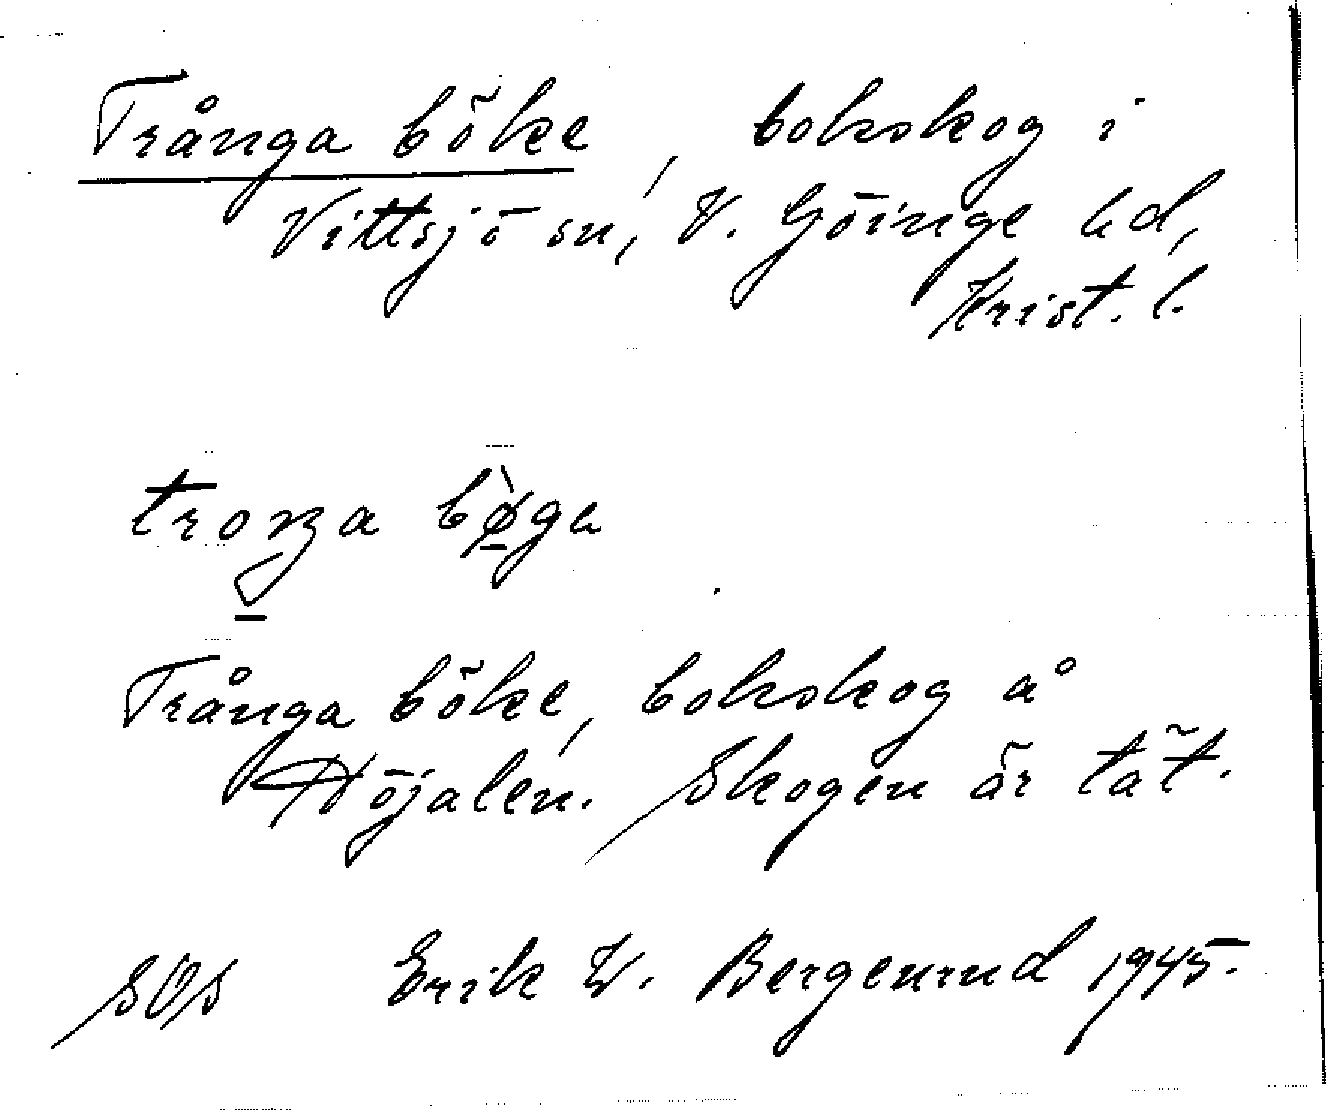 Trånga böke, bokskog i
Vittsjö sn, V. Göinge hd,
Krist. l.
troŋa bø̀ga
Trånga böke, bokskog å
Höjalen. Skogen är tät.
SOS Erik W. Bergenrud 1945.